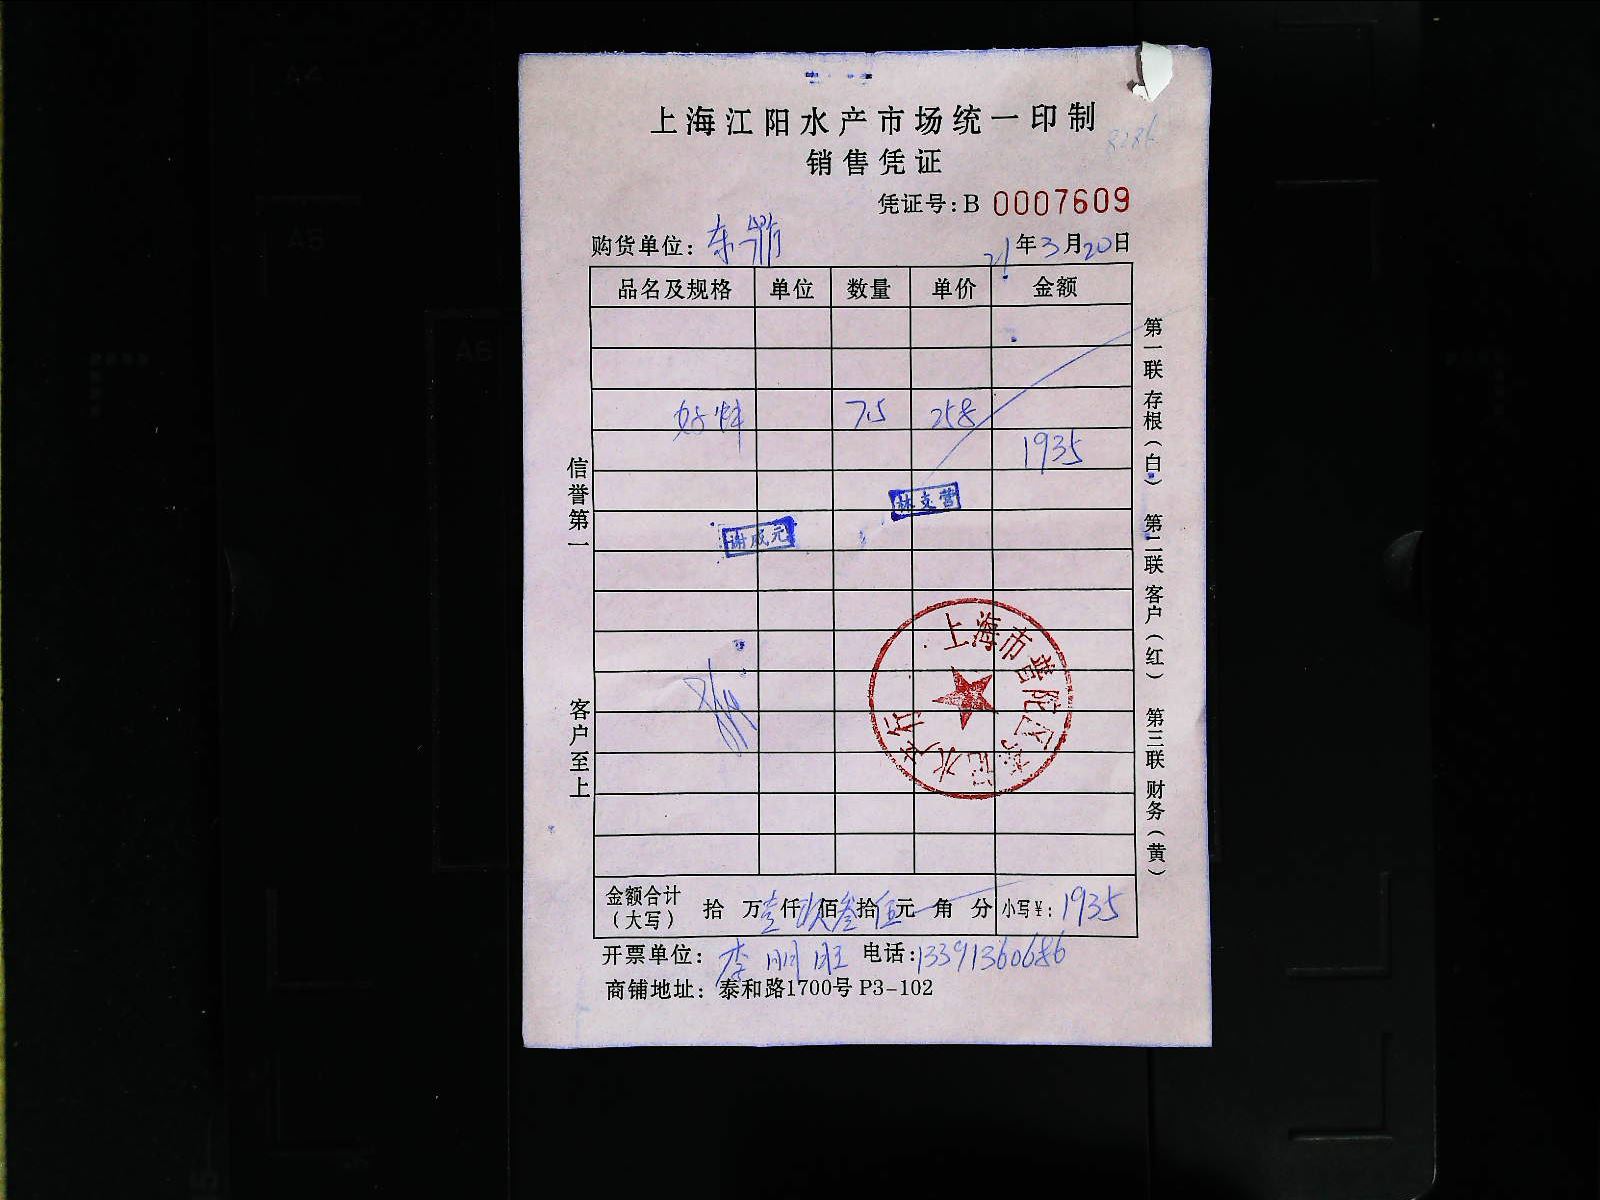 上海江阳水产市场统一印制
销售凭证
8286
凭证号:B 0007609
购货单位: 东
21年3月20日
品名及规格 单位 数量 单价 金额
7.5 258
1935
林支营
谢成元
信誉第一
客户至上
第一联存根(白) 第二联客户(红) 第三联财务(黄)
上海市普陀区 记水产行
金额合计(大写) 拾 万壹仟玖佰叁拾伍元 角 分 小写¥: 1935
开票单位: 李明旺 电话:13391360686
商铺地址: 泰和路1700号 P3-102